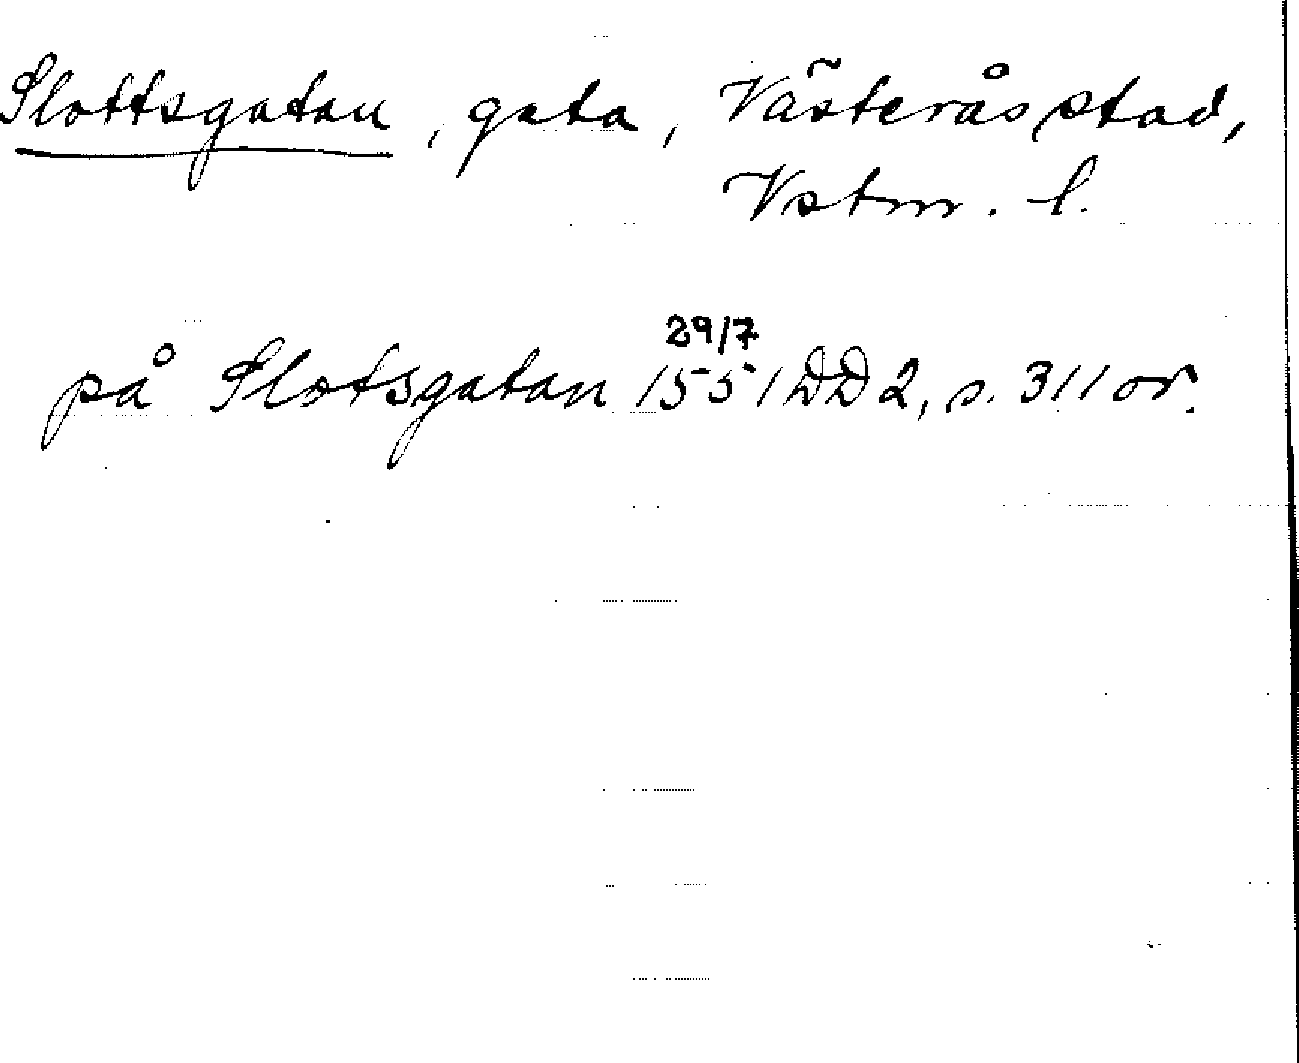 Slottsgatan, gata, Västerås stad,
Vstm. l.
29/7
på Slotsgatan 1551 DD 2, s. 311 or.